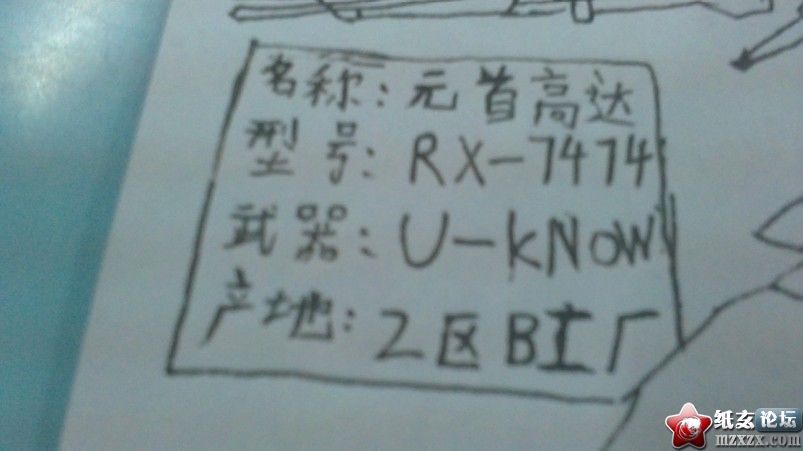 名称：元首高达
型号：RX-7474
武器：U-KNOW
产地：2区B工厂
纸友论坛
www.mzxzx.com